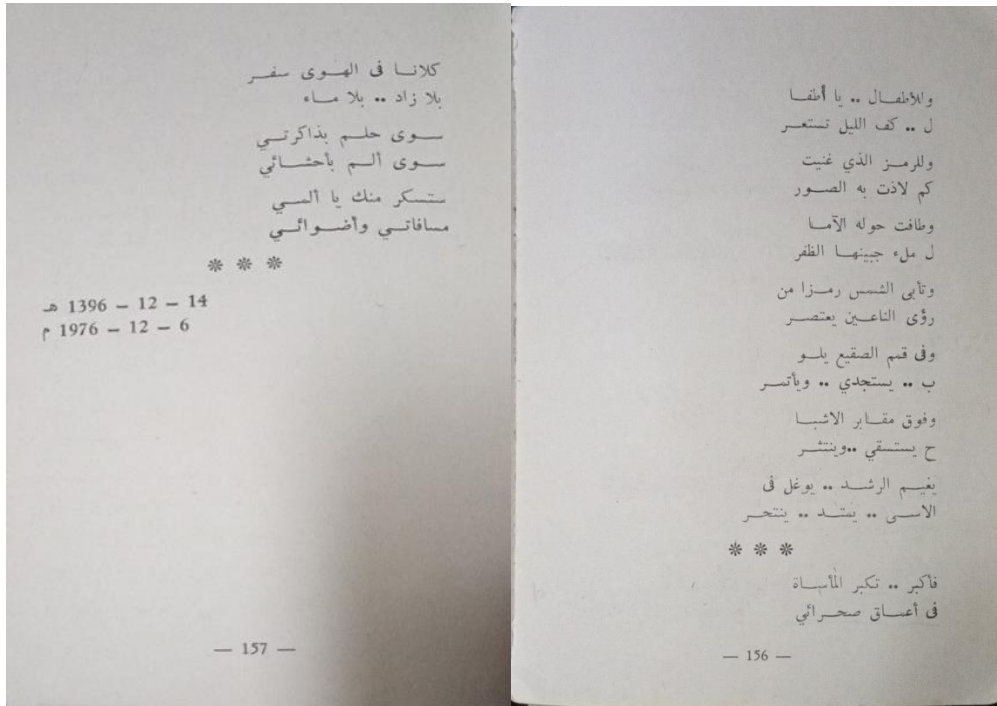 وللأطفـال .. يا أطفـا
ل .. كف الليل تستعـر
وللرمـز الذي غنيت
كم لاذت به الصـور
وطافت حوله الآمـا
ل ملء جبينهـا الظفر
وتأبى الشمس رمـزا من
رؤى الناعـين يعتصـر
وفى قمم الصقيع يلـو
ب .. يستجدي .. ويأتسـر
وفوق مقـابر الاشبـا
ح يستسقي ..وينتثـر
يغيـم الرشـد .. يوغل فى
الاسـى .. يمتـد .. ينتحـر
* * *
فأكبر .. تكبر المأسـاة
فى أعمـاق صحـرائي
— 156 —
كلانـا فى الهـوى سفـر
بلا زاد .. بلا مـاء
سـوى حلـم بذاكرتـي
سـوى ألـم بأحشـائي
ستسكر منك يا ألمـي
مسافاتـي وأضـوائـي
* * *
14 – 12 – 1396 هـ
6 – 12 – 1976 م
— 157 —